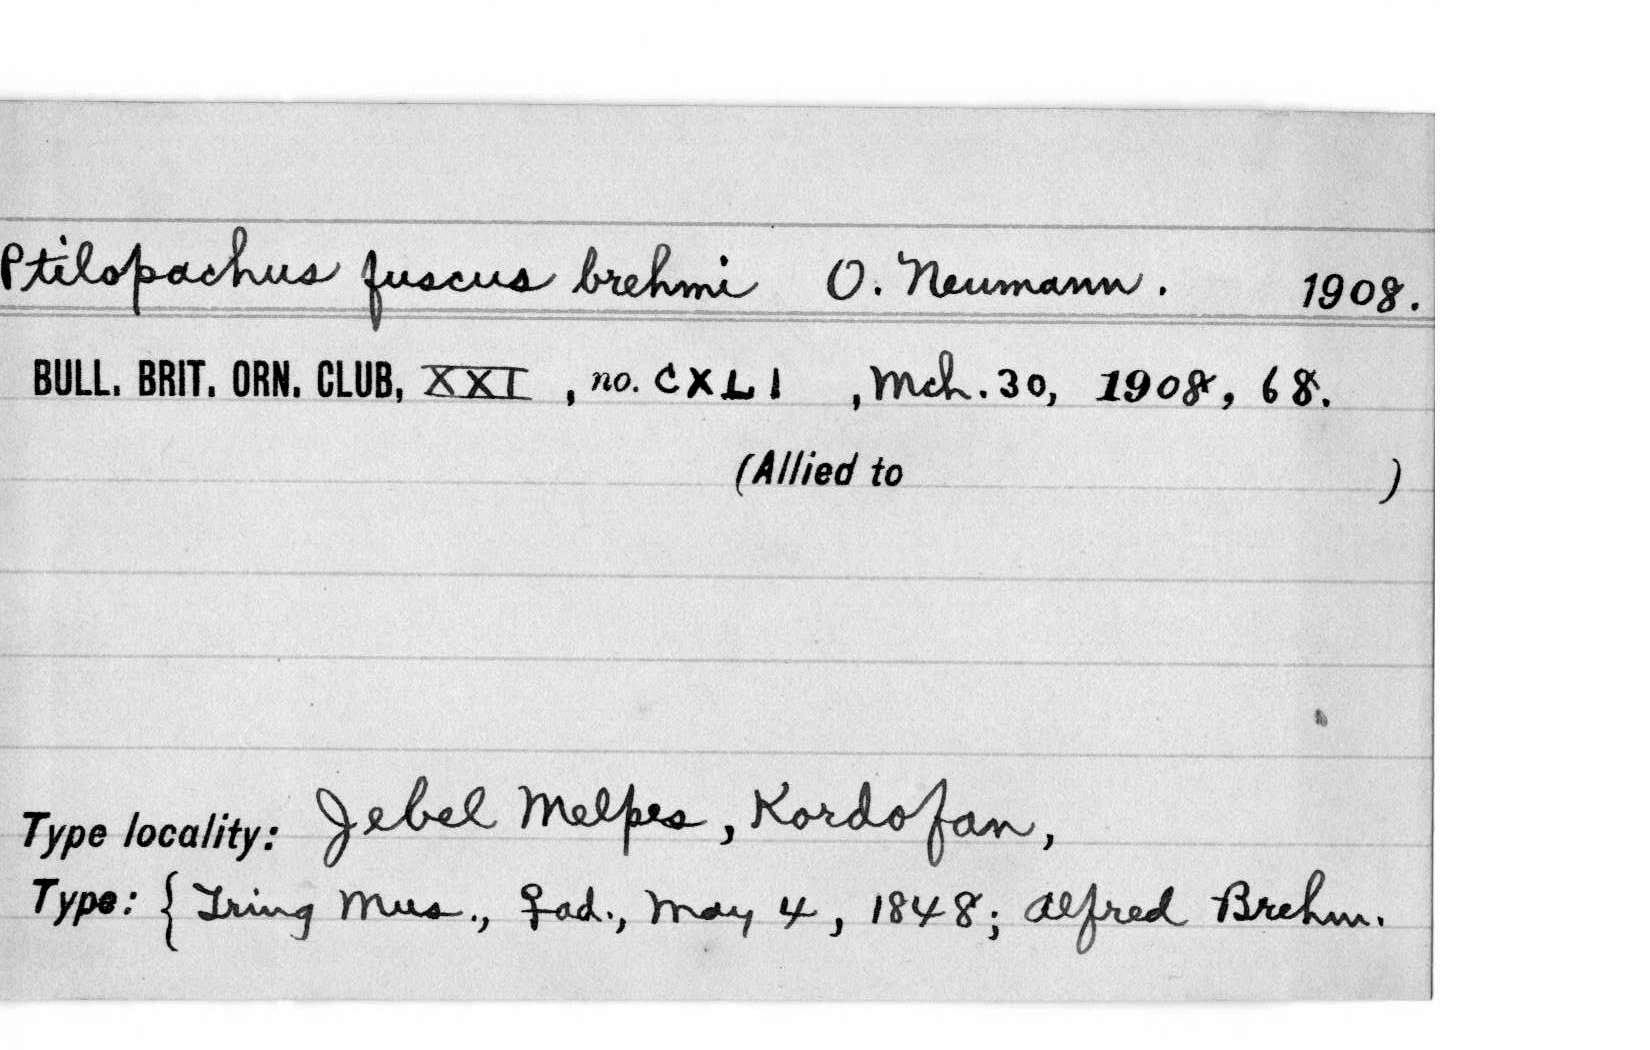 Ptilopachus fuscus brehmi O. Neumann. 1908.
BULL. BRIT. ORN. CLUB, XXI , no. CXLI , Mch. 30, 1908, 68.
(Allied to )
Type locality: Jebel Melpes, Kordofan,
Type: { Tring Mus., ♀ad., May 4, 1848; Alfred Brehm.